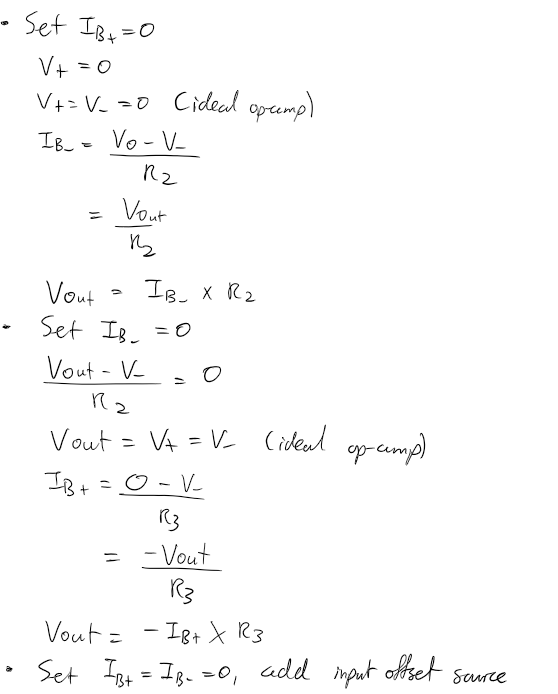 • Set I_B+ = 0
V+ = 0
V+ = V- = 0 (ideal op-amp)
I_B- = (Vo - V-) / R2
= Vout / R2
Vout = I_B- × R2
• Set I_B- = 0
(Vout - V-) / R2 = 0
Vout = V+ = V- (ideal op-amp)
I_B+ = (0 - V-) / R3
= -Vout / R3
Vout = - I_B+ × R3
• Set I_B+ = I_B- = 0, add input offset source